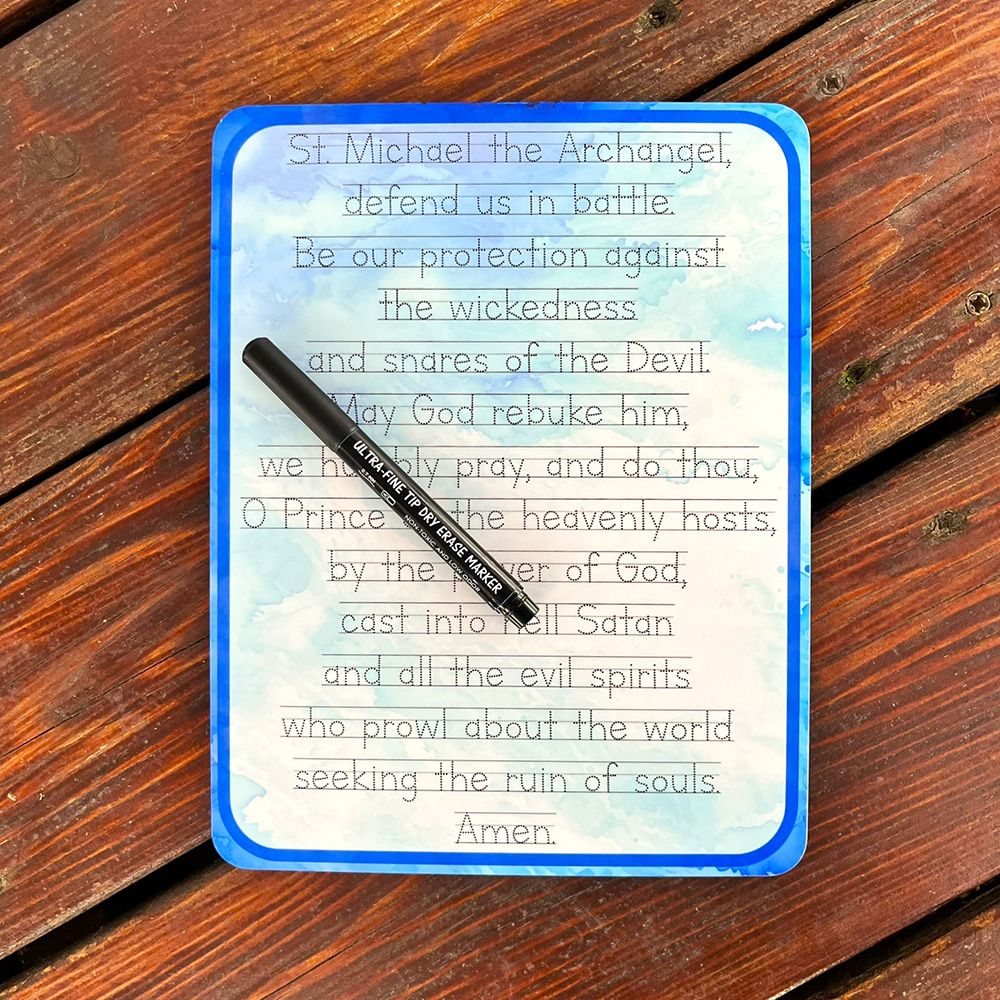 St. Michael the Archangel,
defend us in battle.
Be our protection against
the wickedness
and snares of the Devil.
May God rebuke him,
we humbly pray, and do thou,
O Prince the heavenly hosts,
by the power of God,
cast into hell Satan
and all the evil spirits
who prowl about the world
seeking the ruin of souls.
Amen.
ULTRA-FINE TIP DRY ERASE MARKER
NON-TOXIC AND LOW ODOR